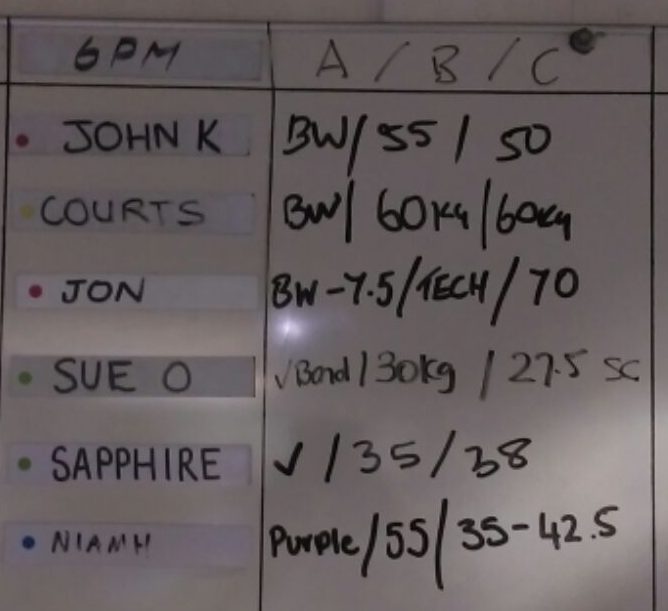 6PM A / B / C
JOHN K BW / 55 / 50
COURTS BW / 60kg / 60kg
JON BW -7.5 / TECH / 70
SUE O √Band / 30kg / 27.5 SC
SAPPHIRE ✓ / 35 / 38
NIAMH Purple / 55 / 35-42.5